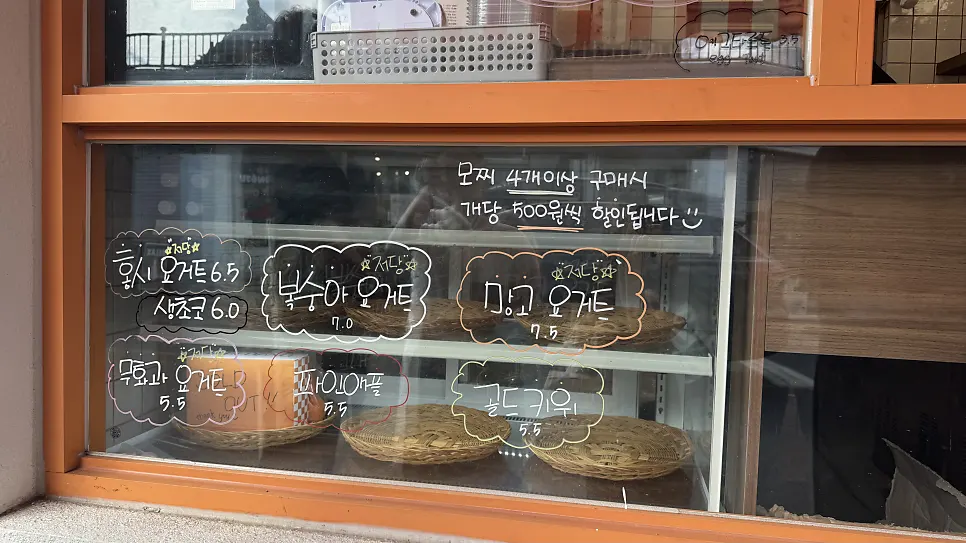 에그타르트 3.5
egg tart
모찌 4개이상 구매시
개당 500원씩 할인됩니다
저당
홍시 요거트 6.5
생초코 6.0
저당
복숭아 요거트
7.0
저당
망고 요거트
7.5
저당
무화과 요거트
5.5
파인애플
5.5
골드 키위
5.5
OUT